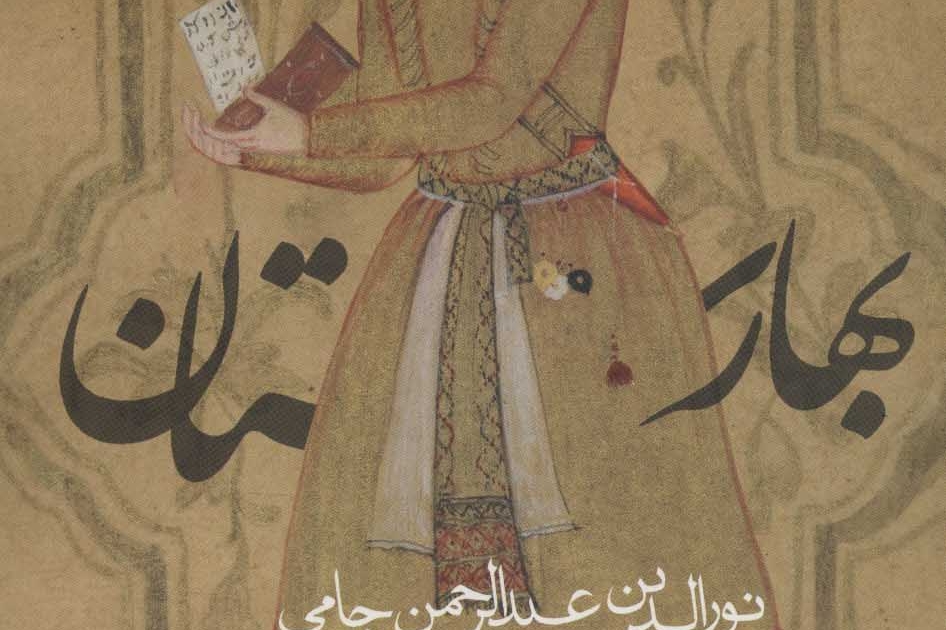 بهارستان
نورالدین عبدالرحمن جامی